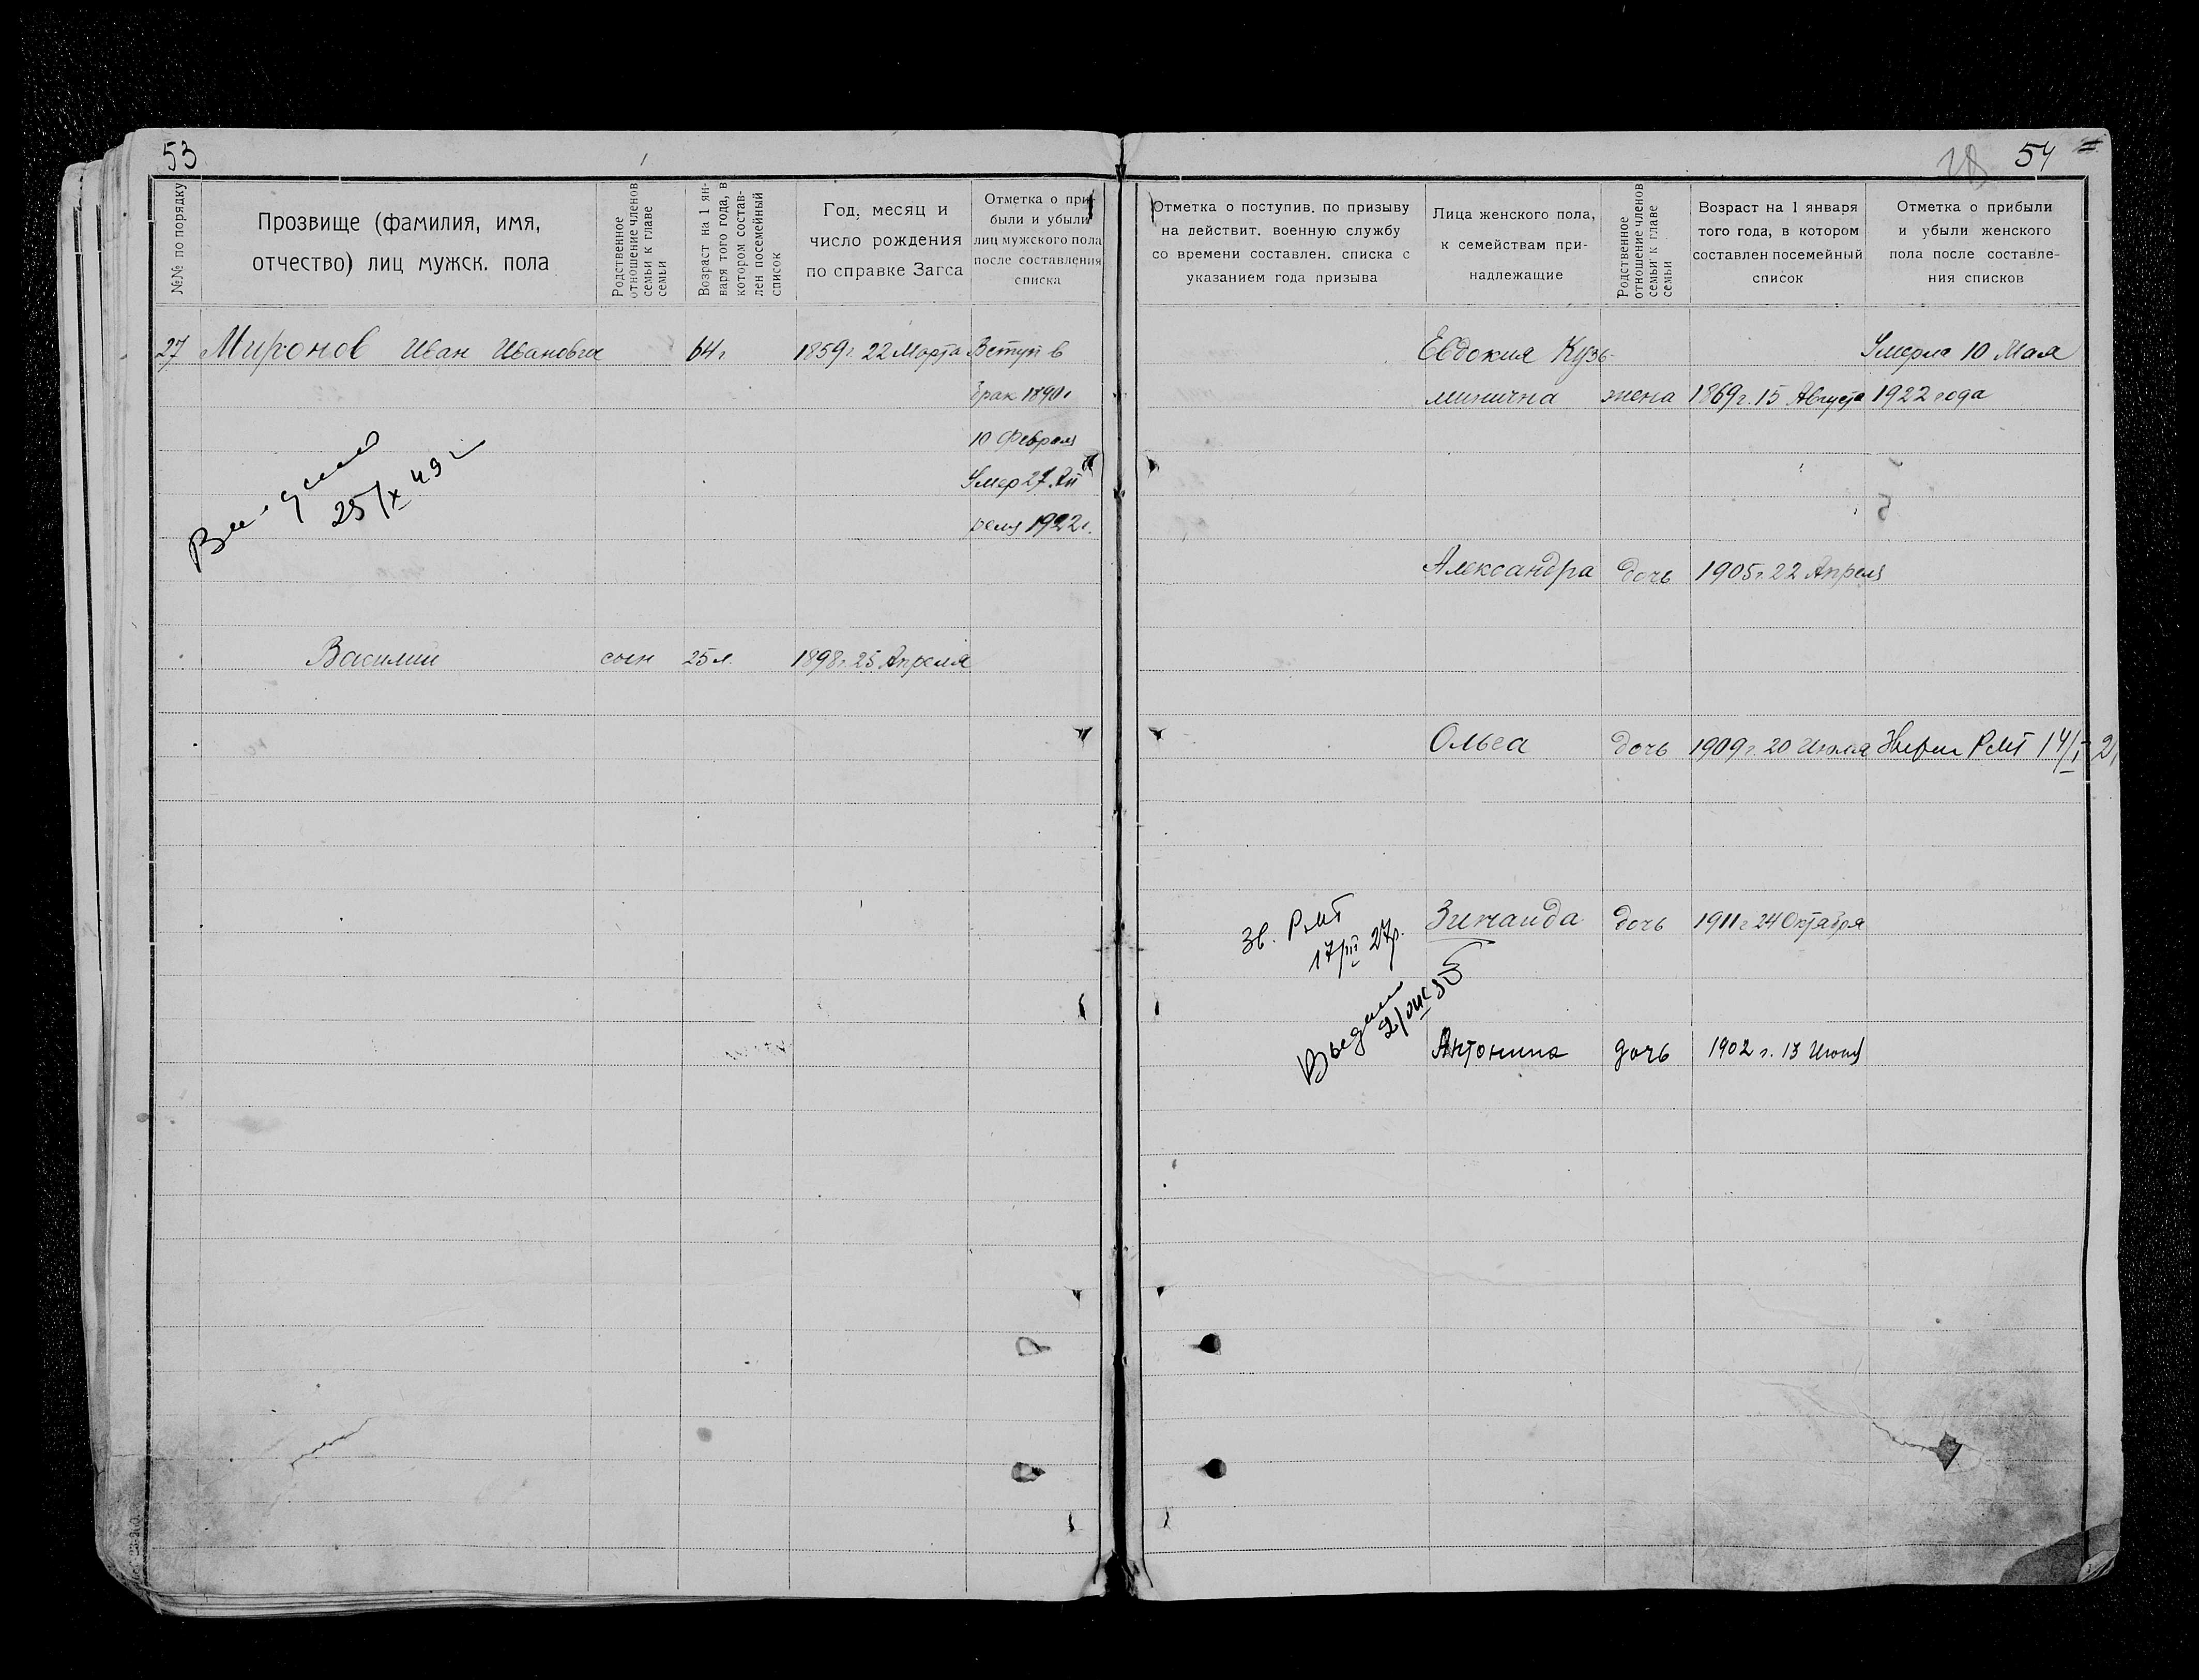 53
№№ по порядку
Прозвище (фамилия, имя,
отчество) лиц мужск. пола
Родственное
отношение членов
семьи к главе
семьи
Возраст на 1 ян-
варя того года, в
котором состав-
лен посемейный
список
Год, месяц и
число рождения
по справке Загса
Отметка о при-
были и убыли
лиц мужского пола
после составления
списка
27 Миронов Иван Иванович 64 г 1859 г. 22 Марта Вступ в
брак 1890 г
10 Февраля
Умер 27 Ап
реля 1922 г.
25/X 49 г
Василий сын 25 л. 1898 г. 25 Апреля
54
Отметка о поступив. по призыву
на действит. военную службу
со времени составлен. списка с
указанием года призыва
Лица женского пола,
к семействам при-
надлежащие
Родственное
отношение членов
семьи к главе
семьи
Возраст на 1 января
того года, в котором
составлен посемейный
список
Отметка о прибыли
и убыли женского
пола после составле-
ния списков
Евдокия Кузь- Умерла 10 Мая
минична жена 1869 г. 15 Августа 1922 года
Александра дочь 1905 г. 22 Апреля
Ольга дочь 1909 г. 20 Июля РМТ 14/I
Зв. РМТ Зинаида дочь 1911 г 24 Октября
17/III 27 г.
Антонина дочь 1902 г. 13 Июня